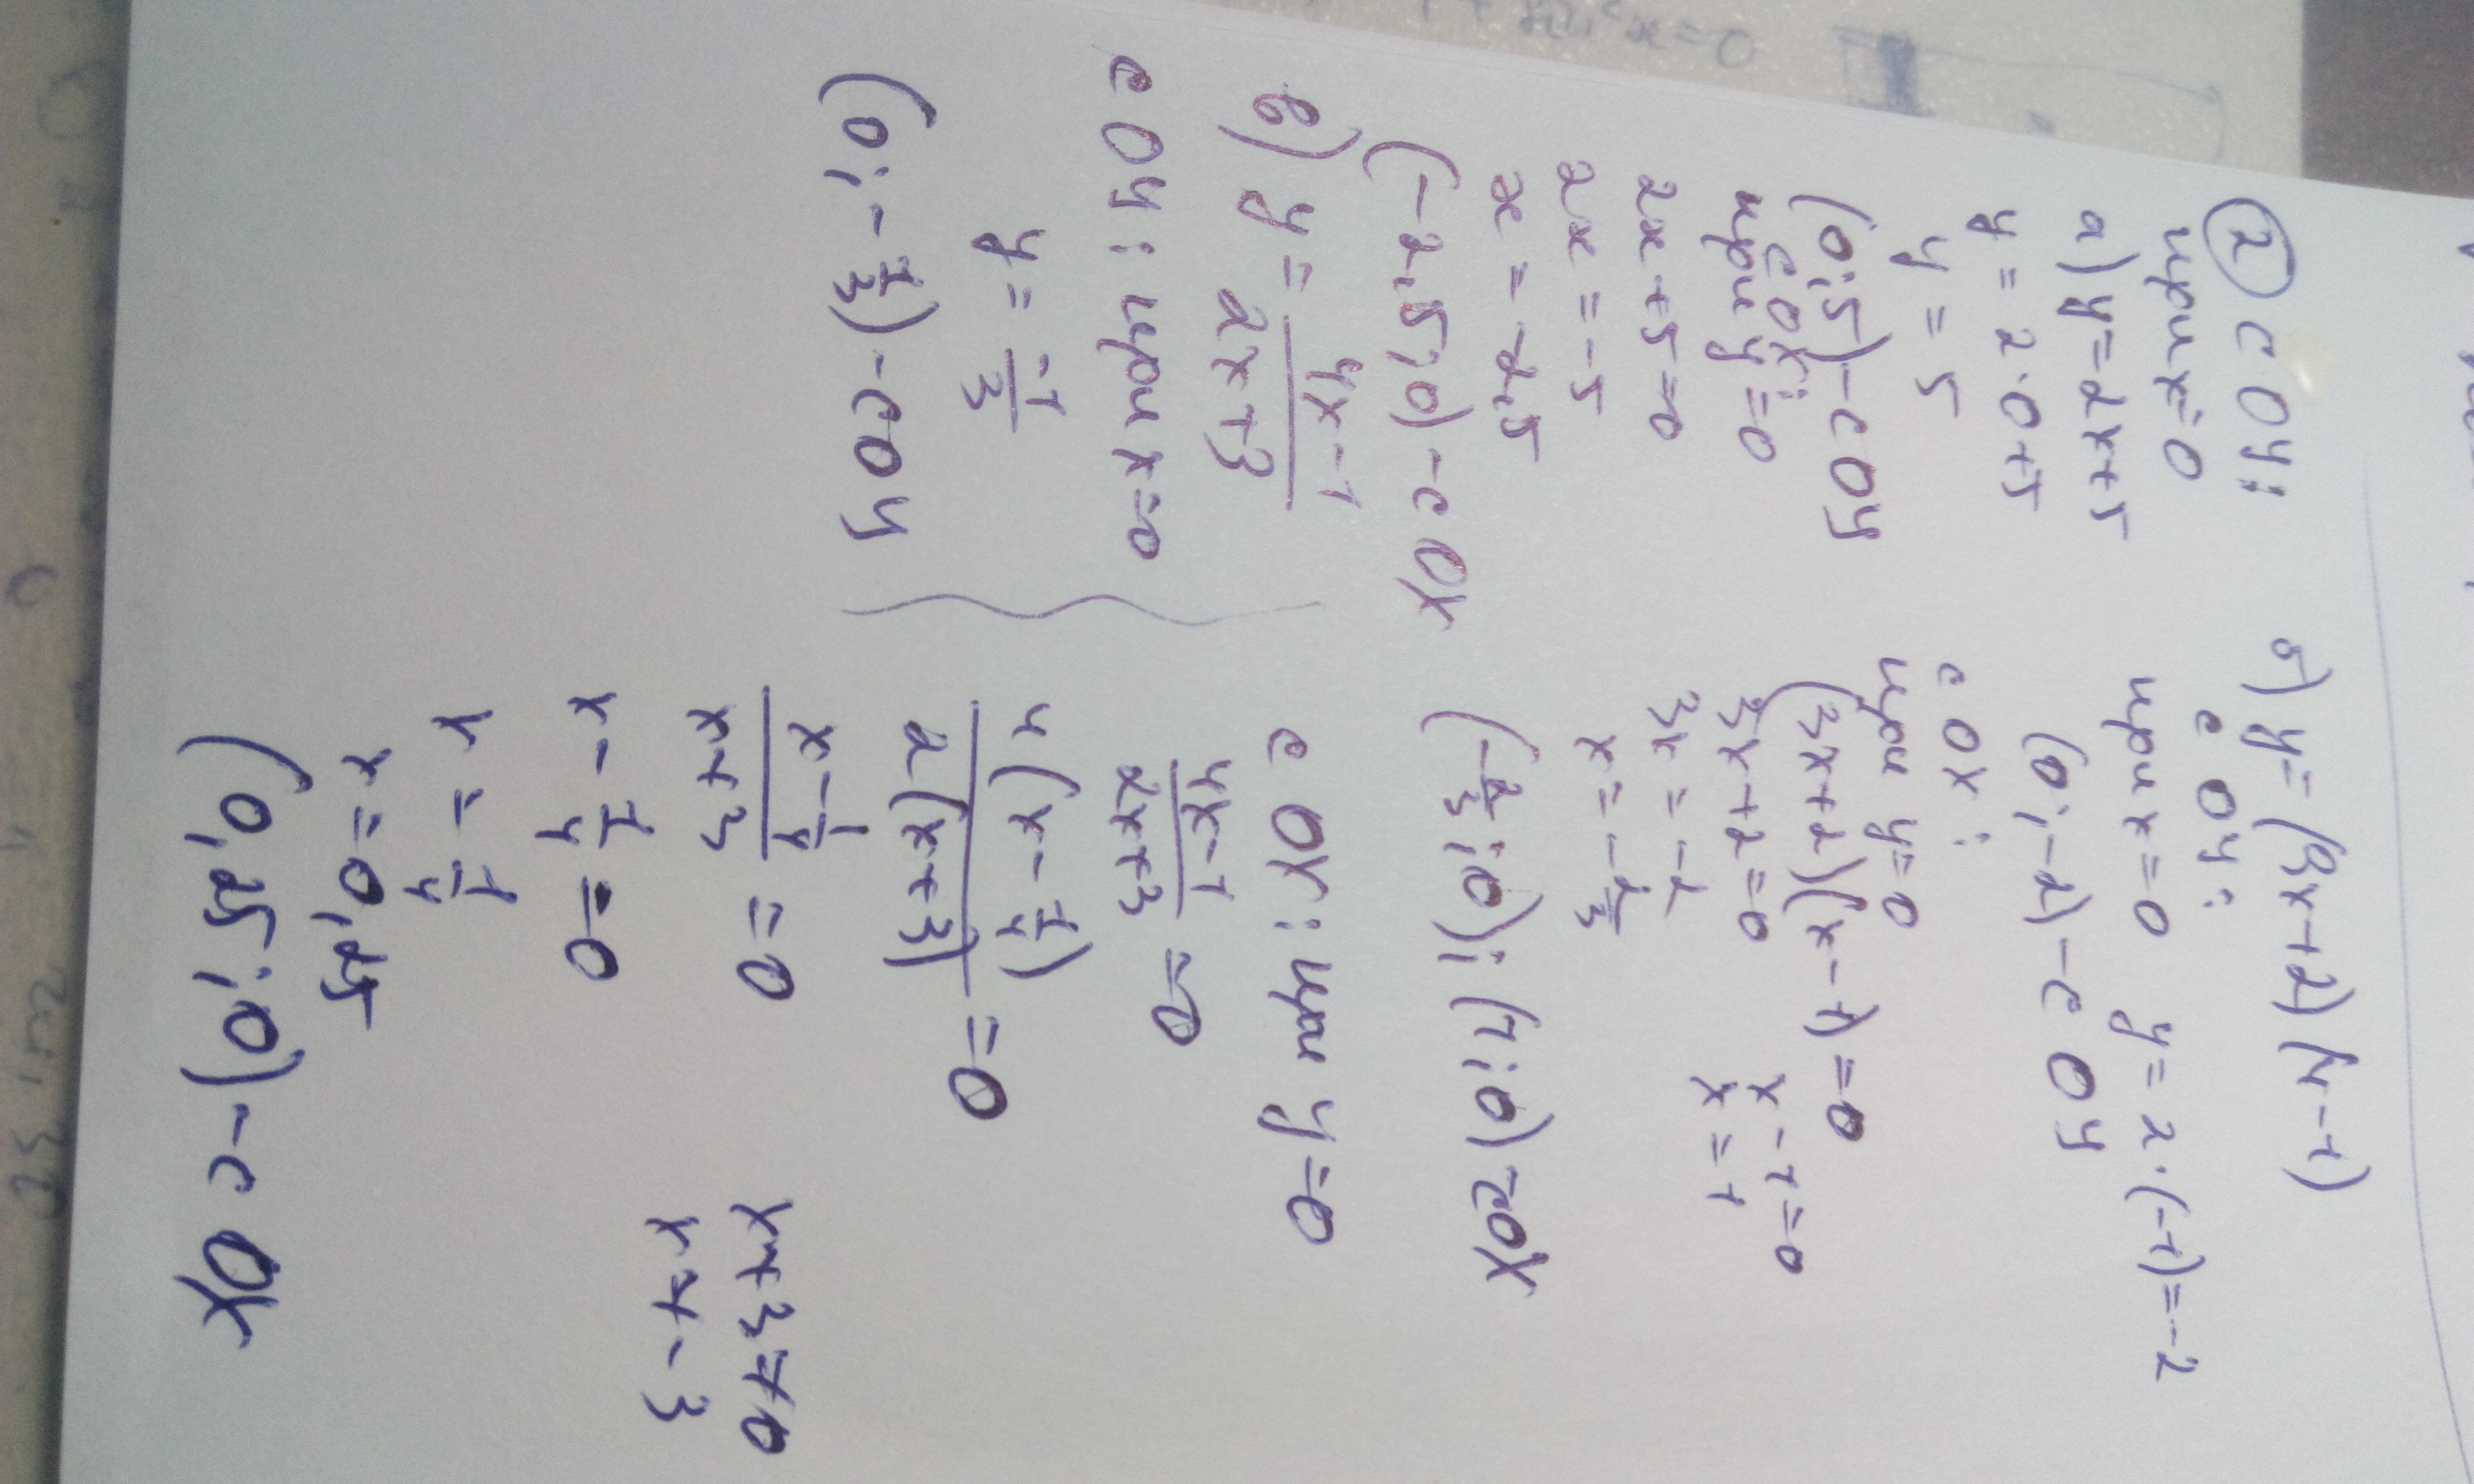 ② с Oy:
при x=0
а) y=2x+5
y = 2·0+5
y = 5
(0;5) - с Oy
с Ox:
при y=0
2x+5=0
2x=-5
x = -2,5
(-2,5;0) - с Ox
в) y = (4x-1)/(2x+3)
с Oy: при x=0
y = -1/3
(0; -1/3) - с Oy
б) y=(3x+2)(x-1)
с Oy:
при x=0 y=2·(-1)=-2
(0;-2) - с Oy
с Ox:
при y=0
(3x+2)(x-1)=0
3x+2=0 x-1=0
3x=-2 x=1
x=-2/3
(-2/3;0); (1;0) - с Ox
с Ox: при y=0
(4x-1)/(2x+3) =0
4(x-1/4)/2(x+3) =0
(x-1/4)/(x+3) =0 x+3≠0
x≠-3
x-1/4=0
x=1/4
x=0,25
(0,25;0) - с Ox